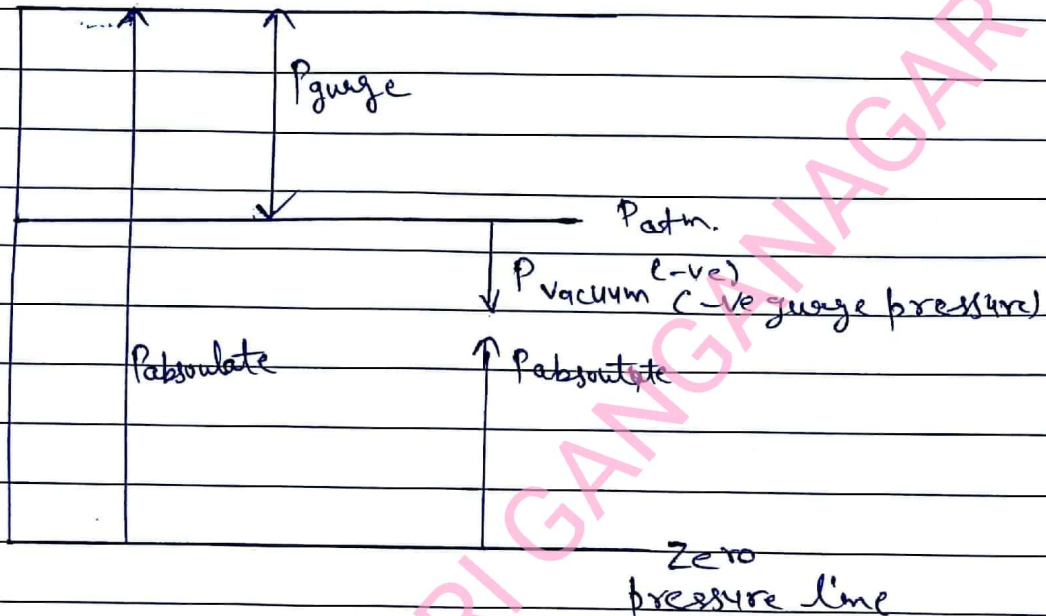 Pgurge
Patm.
Pvacuum (-ve)
(-ve gurge pressure)
Pabsoulate
Pabsoutate
Zero
pressure line
RI GANGANAGAR